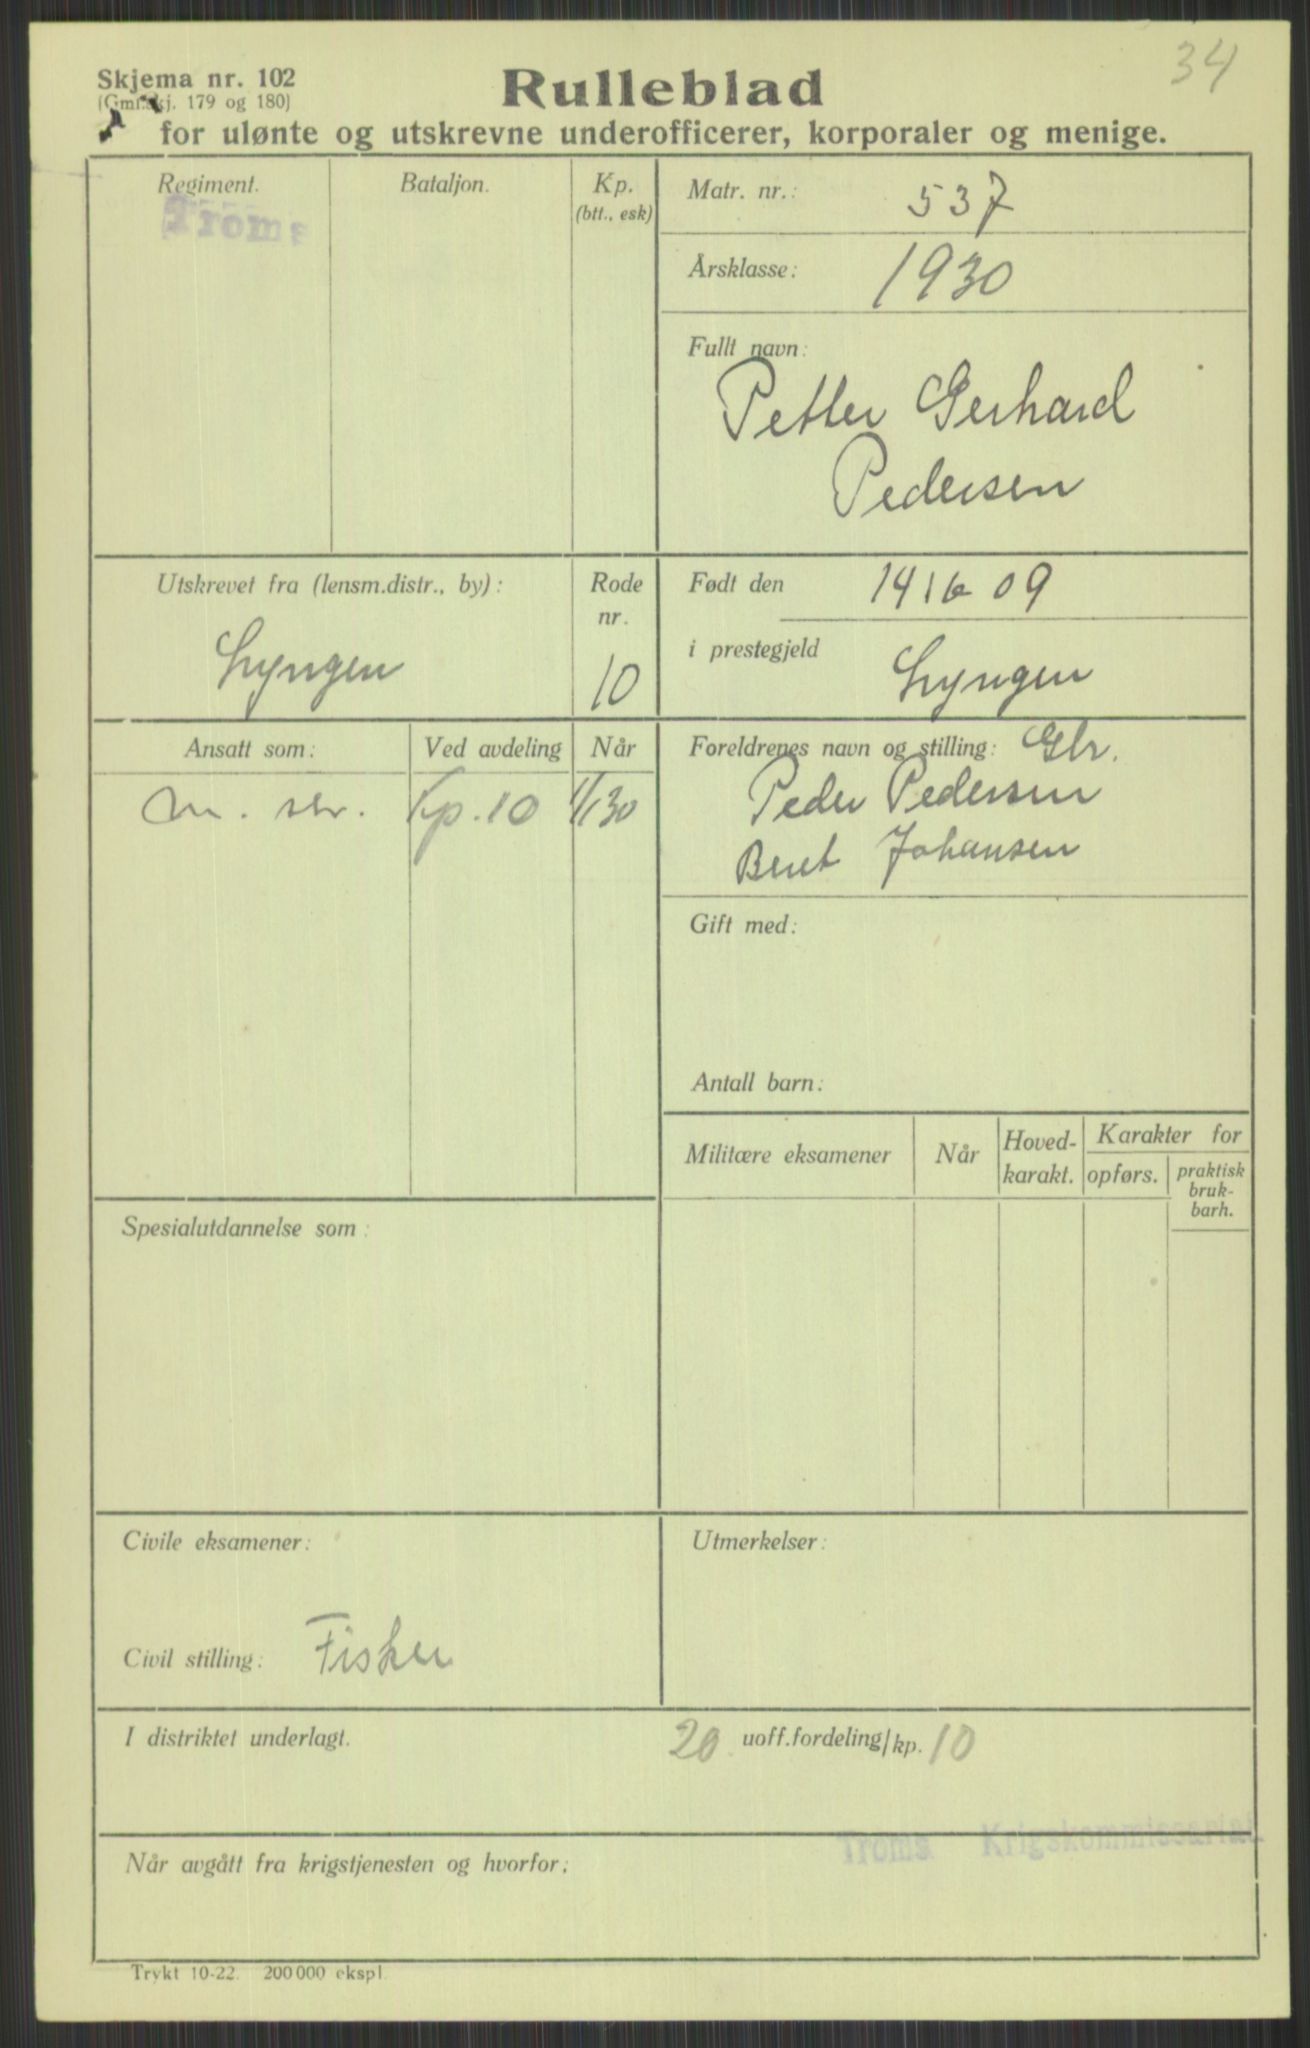 34
Skjema nr. 102
(Gml.skj. 179 og 180)
Rulleblad
for ulønte og utskrevne underofficerer, korporaler og menige.
Regiment.
Troms
Bataljon.
Kp.
(btt., esk)
Matr. nr.: 537
Årsklasse: 1930
Fullt navn:
Petter Gerhard
Pedersen
Utskrevet fra (lensm.distr., by):
Lyngen
Rode
nr.
10
Født den
i prestegjeld Lyngen
Ansatt som: Ved avdeling Når
m. str. Kp. 10 1/1 30
Foreldrenes navn og stilling: Gbr.
Peder Pedersen
Beret Johansen
Gift med:
Antall barn:
Militære eksamener
Når
Hoved-
karakt.
Karakter for
opførs.
praktisk
bruk-
barh.
Spesialutdannelse som:
Civile eksamener:
Civil stilling: Fisker
Utmerkelser:
I distriktet underlagt. 20 uoff.fordeling/kp. 10
Troms Krigskommissariat
Når avgått fra krigstjenesten og hvorfor:
Trykt 10-22. 200 000 ekspl.